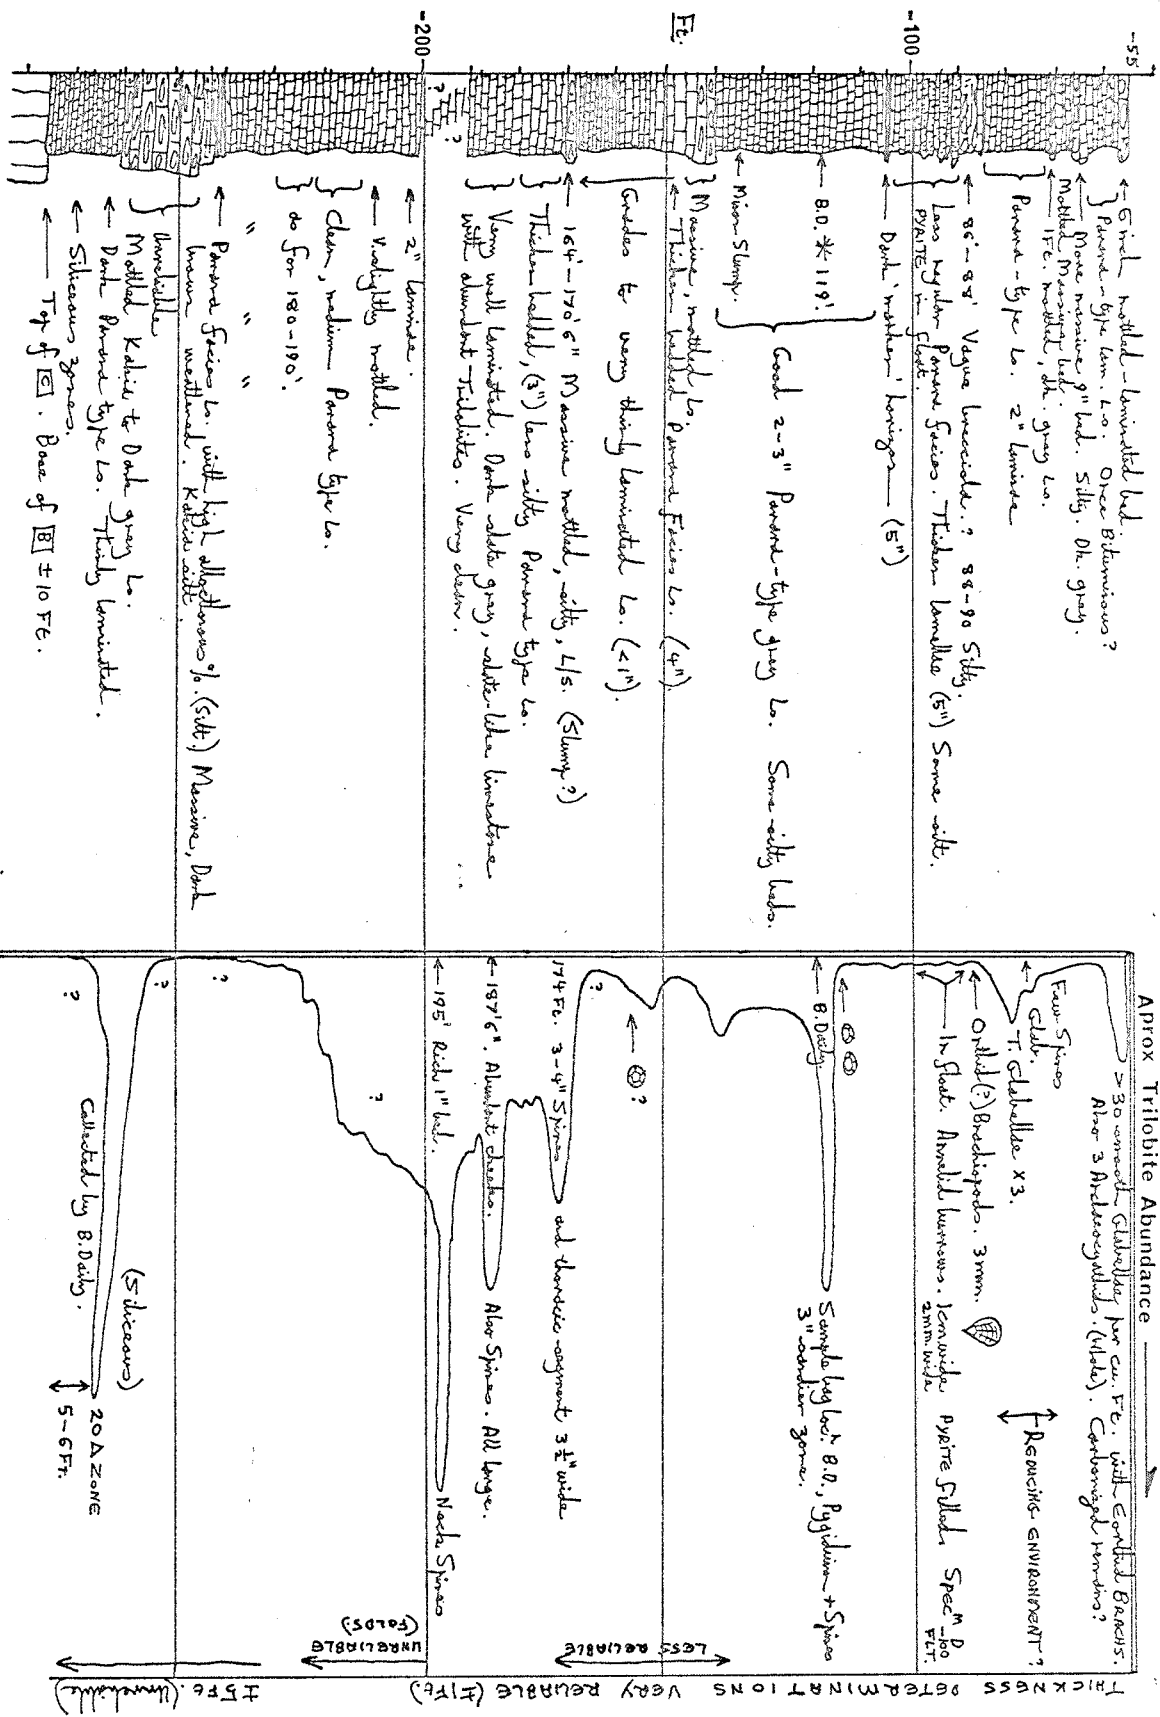 -55
-100
Ft.
-200
← 6 inch mottled-laminated bed
} Parara-type Lam. Ls. Once Bituminous?
← More massive 9" bed. Silty. Dk. gray.
Mottled, Massive bed.
← 1 Ft. mottled, dk. gray Ls.
} Parara-type Ls. 2" laminae
← 86'-88' Vague breccia? 88-90 Silty.
} Less regular Parara facies. Thicker lamellae (5") Some silt.
PYRITE in float.
← Dark 'marker' horizon — (5")
← B.D. * 119'.
} Good 2-3" Parara-type grey Ls. Some silty beds.
← Minor Slump.
} Massive, mottled Ls.
← Thicker bedded Parara Facies Ls. (4").
Grades to very thinly laminated Ls. (<1").
← 164'-170'6" Massive mottled, silty, L/S. (Slump?)
} Thicker bedded, (3") less silty Parara type Ls.
} Very well laminated. Dark slate gray, slate-like limestone
with abundant Trilobites. Very clean.
?
?
← 2" laminae.
← V. slightly mottled.
} Clean, medium Parara type Ls.
} as for 180-190'.
" " "
← Parara facies Ls. with high allocthonous %. (Silt.) Massive, Dark
brown weathered. Kahie silt.
} Annelidible
Mottled Kahie to Dark gray Ls.
← Dark Parara type Ls. Thinly laminated.
← Siliceous zones.
← Top of [C]. Base of [B] ± 10 Ft.
Aprox Trilobite Abundance
>30 smooth Glabellae per cu. Ft. with Eorthid BRACHS.
Also 3 Archaeocyathids. (Whole). Carbonized remains?
Few Spines
← Glab.
T. Glabellae X3.
REDUCING ENVIRONMENT?
← Orthid(?) Brachiopods. 3mm.
← In float. Annelid burrows. 1cm wide Pyrite filled. Specᴹ D -100 FLT.
2mm. wide
← B. Daily.
Sample bag locⁿ B.D., Pygidium + Spines
3" sandier zone.
← ?
?
174 Ft. 3-4" Spines and thoracic segment 3½" wide
← 187'6". Abundant cheeks. Also Spines. All large.
← 195' Rich 1" bed.
Neck Spines
?
?
?
?
(Siliceous)
Collected by B. Daily.
20 Δ ZONE
5-6 Ft.
THICKNESS DETERMINATIONS VERY RELIABLE (±1 Ft.)
LESS RELIABLE
UNRELIABLE
(FOLDS.)
±5 Ft. (Unreliable)